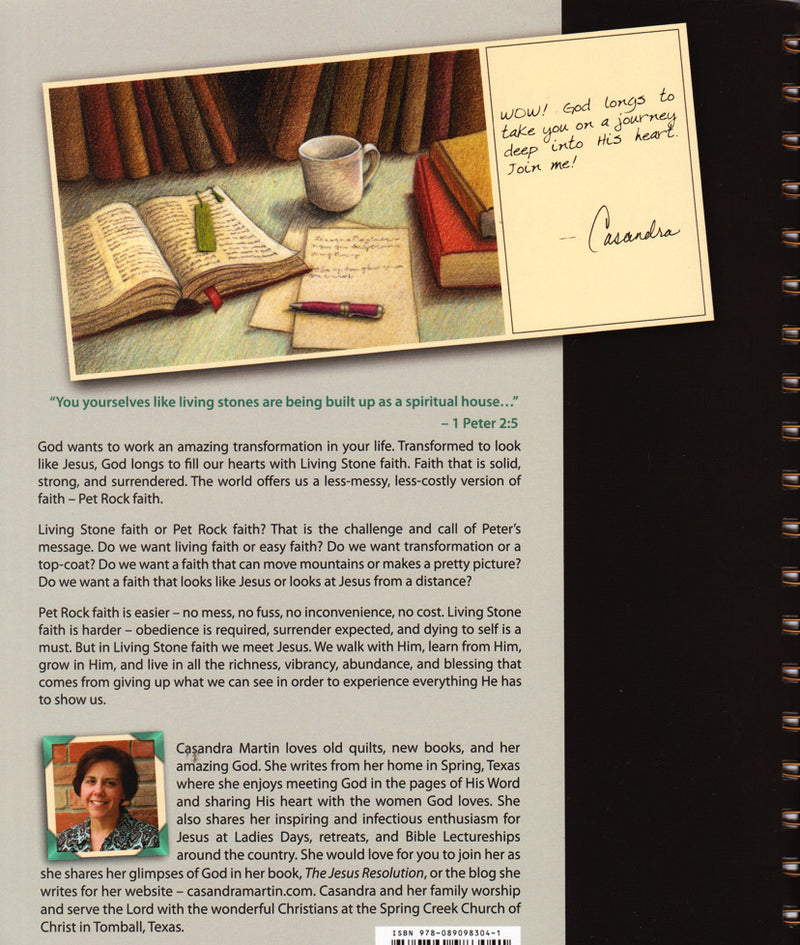 WOW! God longs to
take you on a journey
deep into His heart.
Join me!
-- Casandra
“You yourselves like living stones are being built up as a spiritual house…”
– 1 Peter 2:5
God wants to work an amazing transformation in your life. Transformed to look
like Jesus, God longs to fill our hearts with Living Stone faith. Faith that is solid,
strong, and surrendered. The world offers us a less-messy, less-costly version of
faith – Pet Rock faith.
Living Stone faith or Pet Rock faith? That is the challenge and call of Peter’s
message. Do we want living faith or easy faith? Do we want transformation or a
top-coat? Do we want a faith that can move mountains or makes a pretty picture?
Do we want a faith that looks like Jesus or looks at Jesus from a distance?
Pet Rock faith is easier – no mess, no fuss, no inconvenience, no cost. Living Stone
faith is harder – obedience is required, surrender expected, and dying to self is a
must. But in Living Stone faith we meet Jesus. We walk with Him, learn from Him,
grow in Him, and live in all the richness, vibrancy, abundance, and blessing that
comes from giving up what we can see in order to experience everything He has
to show us.
Casandra Martin loves old quilts, new books, and her
amazing God. She writes from her home in Spring, Texas
where she enjoys meeting God in the pages of His Word
and sharing His heart with the women God loves. She
also shares her inspiring and infectious enthusiasm for
Jesus at Ladies Days, retreats, and Bible Lectureships
around the country. She would love for you to join her as
she shares her glimpses of God in her book, The Jesus Resolution, or the blog she
writes for her website – casandramartin.com. Casandra and her family worship
and serve the Lord with the wonderful Christians at the Spring Creek Church of
Christ in Tomball, Texas.
ISBN 978-089098304-1